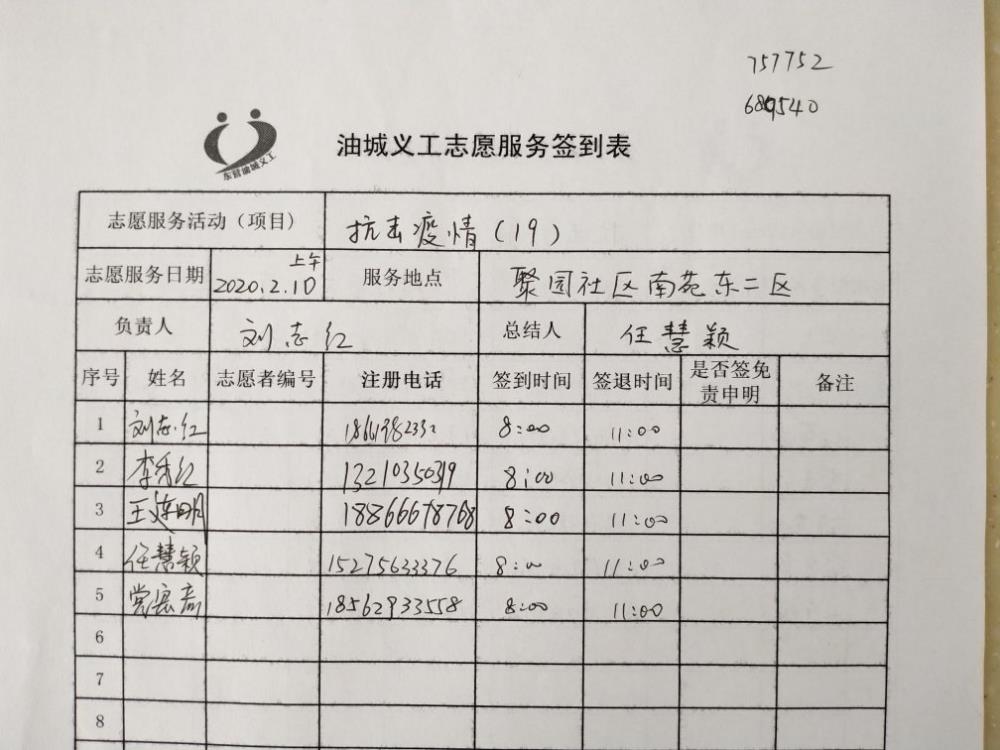 757752
689540
东营油城义工
油城义工志愿服务签到表
志愿服务活动（项目） 抗击疫情（19）
志愿服务日期 2020.2.10 上午 服务地点 聚园社区南苑东二区
负责人 刘志红 总结人 任慧颖
序号 姓名 志愿者编号 注册电话 签到时间 签退时间 是否签免责申明 备注
1 刘志红 8:00 11:00
2 李秀红 13210350319 8:00 11:00
3 18866678768 8:00 11:00
4 任慧颖 15275633376 8:00 11:00
5 18562933558 8:00 11:00
6
7
8